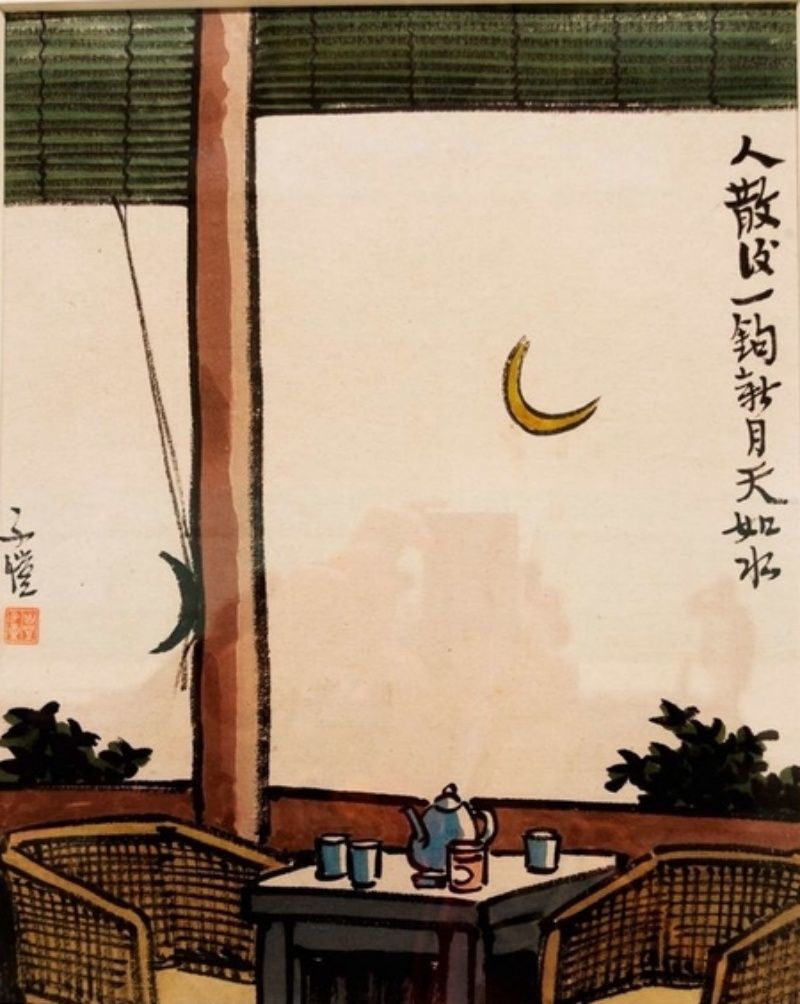 人散後一鉤新月天如水
子愷